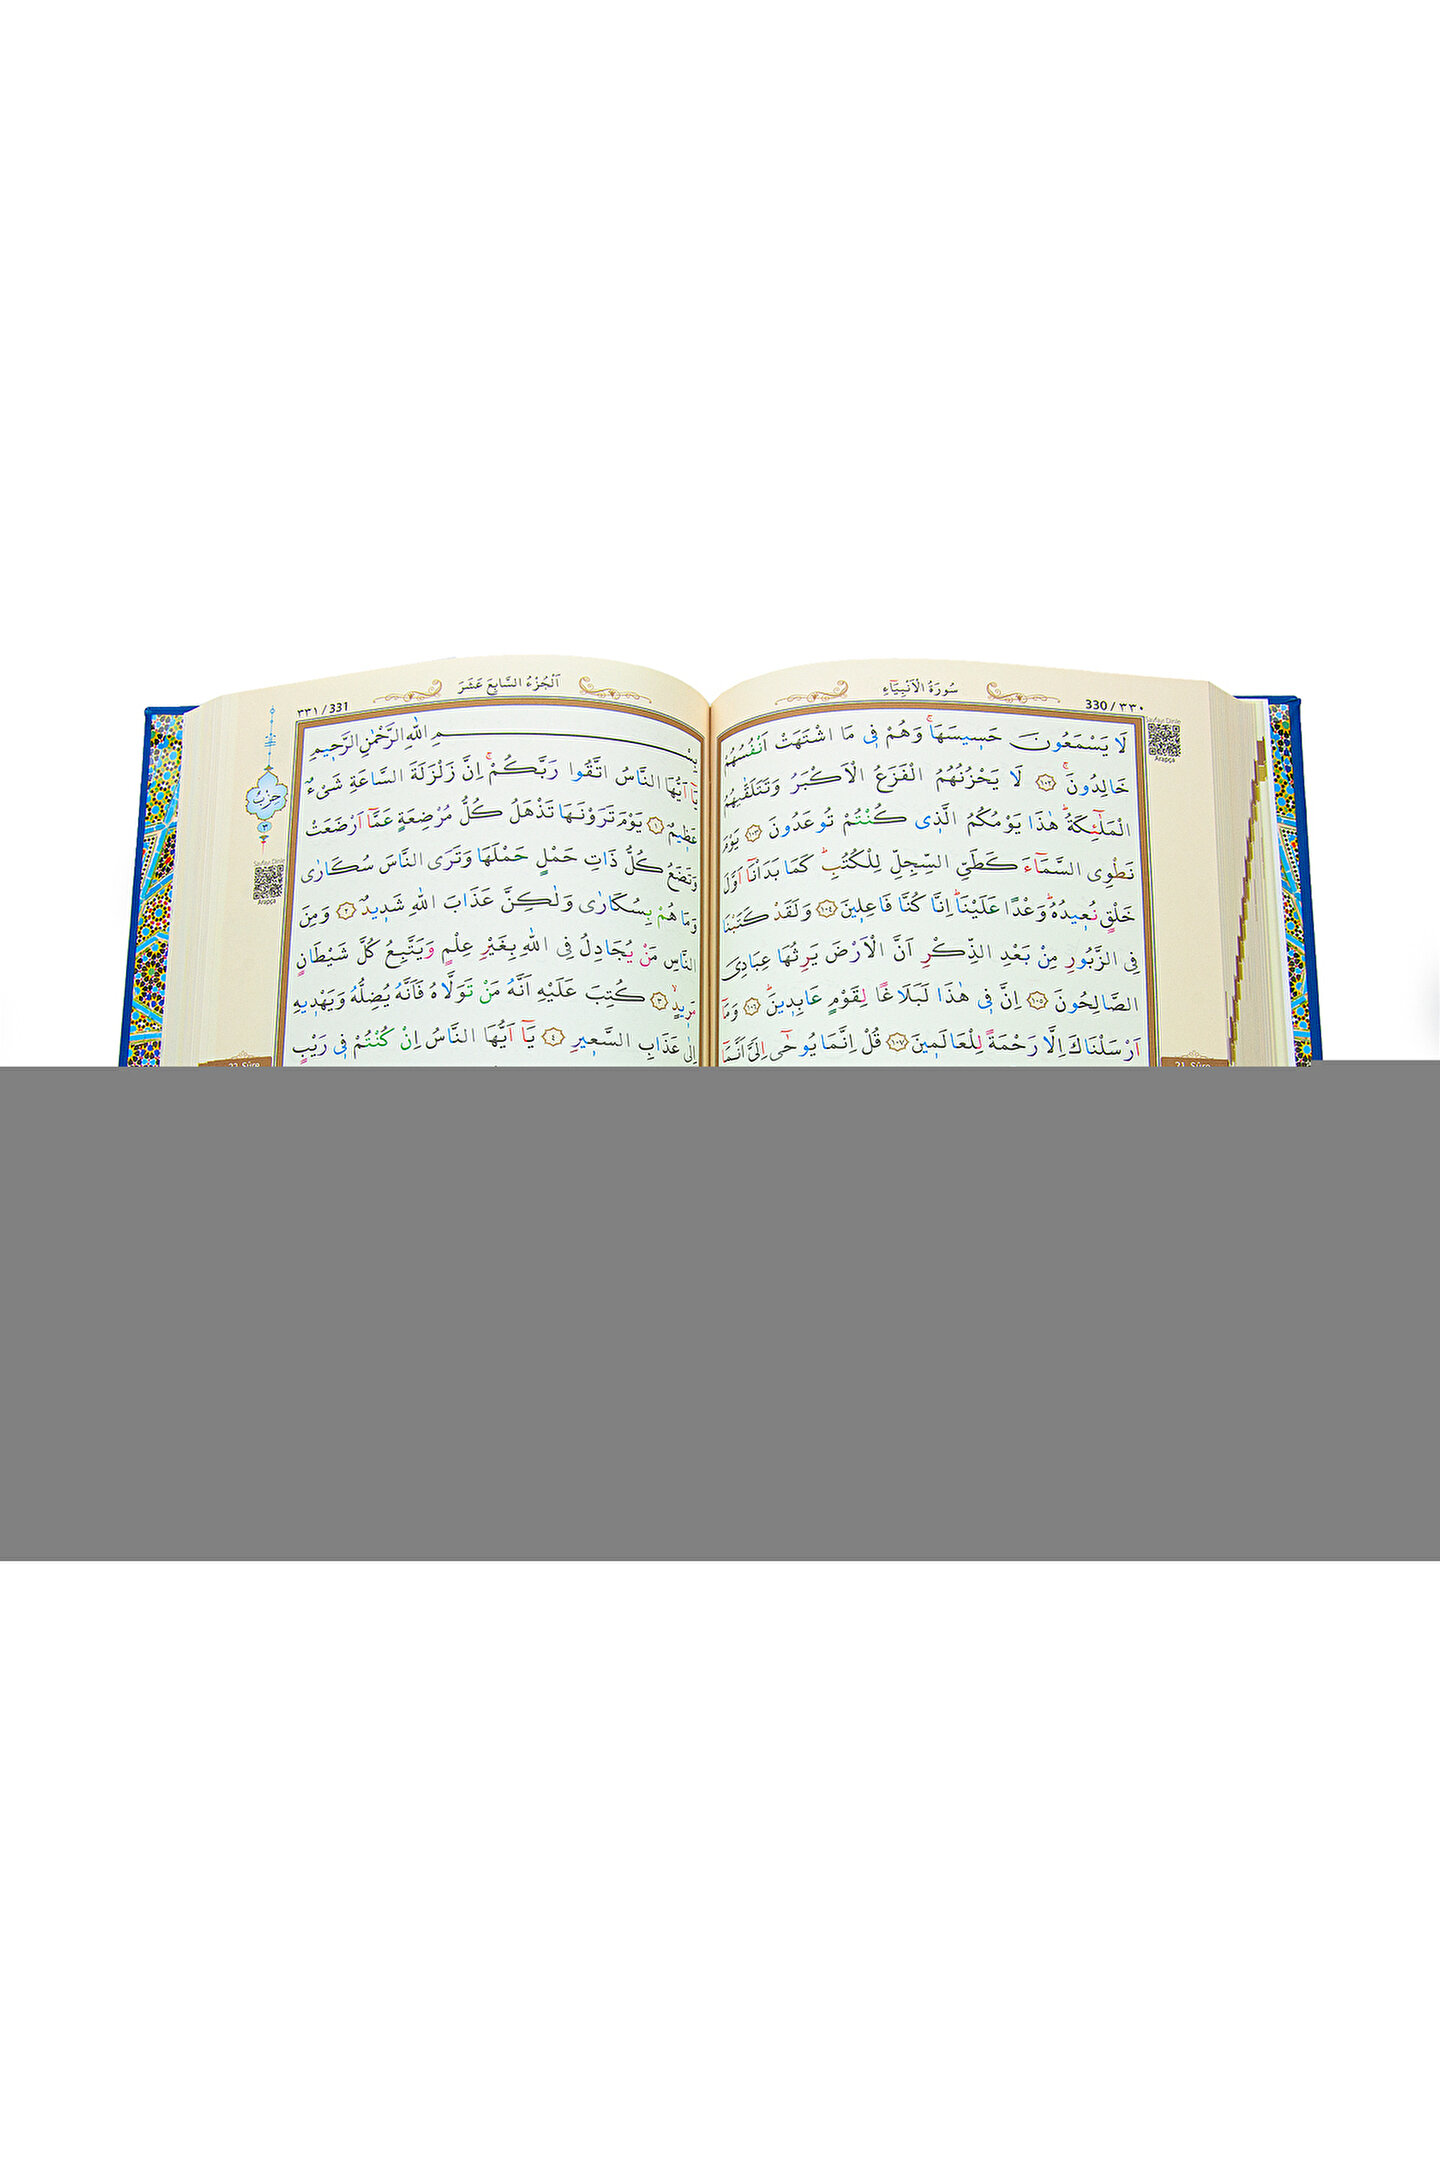 سُورَةُ الْاَنْبِيَاۤءِ
330 / ٣٣٠
Sayfayı Dinle
Arapça
لَا يَسْمَعُونَ حَسٖيسَهَاۚ وَهُمْ فٖى مَا اشْتَهَتْ اَنْفُسُهُمْ
خَالِدُونَۚ ١٠٢ لَا يَحْزُنُهُمُ الْفَزَعُ الْاَكْبَرُ وَتَتَلَقّٰيهُمُ
الْمَلٰٓئِكَةُؕ هٰذَا يَوْمُكُمُ الَّذٖى كُنْتُمْ تُوعَدُونَ ١٠٣ يَوْمَ
نَطْوِى السَّمَاۤءَ كَطَيِّ السِّجِلِّ لِلْكُتُبِؕ كَمَا بَدَاْنَاۤ اَوَّلَ
خَلْقٍ نُعٖيدُهُؕ وَعْدًا عَلَيْنَاؕ اِنَّا كُنَّا فَاعِلٖينَ ١٠٤ وَلَقَدْ كَتَبْنَا
فِى الزَّبُورِ مِنْ بَعْدِ الذِّكْرِ اَنَّ الْاَرْضَ يَرِثُهَا عِبَادِىَ
الصَّالِحُونَ ١٠٥ اِنَّ فٖى هٰذَا لَبَلَاغًا لِقَوْمٍ عَابِدٖينَؕ ١٠٦ وَمَاۤ
اَرْسَلْنَاكَ اِلَّا رَحْمَةً لِلْعَالَمٖينَ ١٠٧ قُلْ اِنَّمَا يُوحٰٓى اِلَىَّ اَنَّمَاۤ
21. Sûre
اَلْجُزْءُ السَّابِعَ عَشَرَ
٣٣١ / 331
حِزْب
Sayfayı Dinle
Arapça
بِسْمِ اللّٰهِ الرَّحْمٰنِ الرَّحٖيمِ
يَاۤ اَيُّهَا النَّاسُ اتَّقُوا رَبَّكُمْۚ اِنَّ زَلْزَلَةَ السَّاعَةِ شَىْءٌ
عَظٖيمٌ ١ يَوْمَ تَرَوْنَهَا تَذْهَلُ كُلُّ مُرْضِعَةٍ عَمَّاۤ اَرْضَعَتْ
وَتَضَعُ كُلُّ ذَاتِ حَمْلٍ حَمْلَهَا وَتَرَى النَّاسَ سُكَارٰى
وَمَا هُمْ بِسُكَارٰى وَلٰكِنَّ عَذَابَ اللّٰهِ شَدٖيدٌ ٢ وَمِنَ
النَّاسِ مَنْ يُجَادِلُ فِى اللّٰهِ بِغَيْرِ عِلْمٍ وَيَتَّبِعُ كُلَّ شَيْطَانٍ
مَرٖيدٍۙ ٣ كُتِبَ عَلَيْهِ اَنَّهُ مَنْ تَوَلَّاهُ فَاَنَّهُ يُضِلُّهُ وَيَهْدٖيهِ
اِلٰى عَذَابِ السَّعٖيرِ ٤ يَاۤ اَيُّهَا النَّاسُ اِنْ كُنْتُمْ فٖى رَيْبٍ
22. Sûre